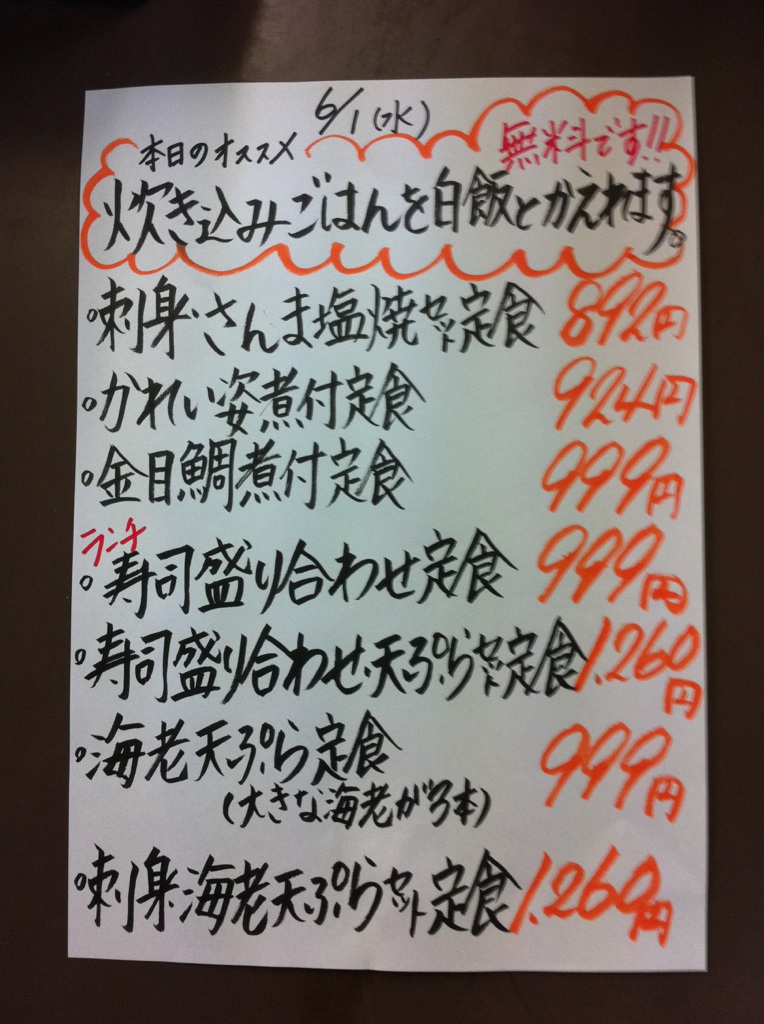 6/1(水)
本日のオススメ
無料です!!
炊き込みごはんを白飯とかえれます。
。刺身・さんま塩焼セット定食 892円
。かれい姿煮付定食 924円
。金目鯛煮付定食 999円
ランチ
。寿司盛り合わせ定食 999円
。寿司盛り合わせ・天ぷらセット定食 1,260円
。海老天ぷら定食 999円
(大きな海老が3本)
。刺身・海老天ぷらセット定食 1,260円